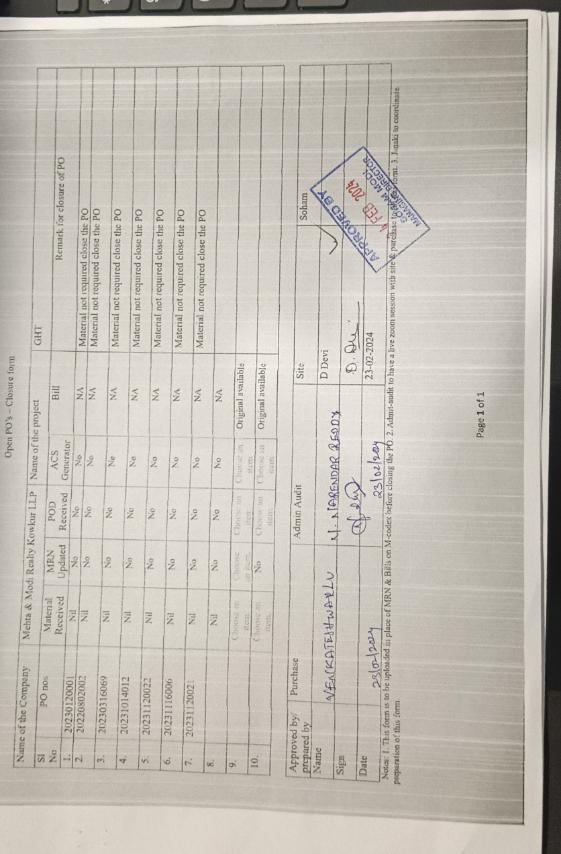 Open PO's – Closure form
Name of the Company Mehta & Modi Realty Kowkur LLP Name of the project GHT
Sl No PO nos Material Received MRN Updated POD Received ACS Generator Bill Remark for closure of PO
1. 20230120001 Nil No No No NA Material not required close the PO
2. 20220802002 Nil No No No NA Material not required close the PO
3. 20230316069 Nil No No No NA Material not required close the PO
4. 20231014012 Nil No No No NA Material not required close the PO
5. 20231120022 Nil No No No NA Material not required close the PO
6. 20231116006 Nil No No No NA Material not required close the PO
7. 2023112002 Nil No No No NA Material not required close the PO
8. Nil No No No NA
9. Choose an item. Choose an item. Choose an item. Choose an item. Original available
10. Choose an item. No Choose an item. Choose an item. Original available
Approved by/ prepared by Purchase Admin Audit Site Soham
Name VENKATESHWARLU N. NARENDAR REDDY D Devi
Sign D. Devi
Date 23/02/2024 23/02/2024 23-02-2024
APPROVED BY
FEB 2024
SOHAM MODI
MANAGING DIRECTOR
Notes: 1. This form is to be uploaded in place of MRN & Bills on M-codex before closing the PO. 2. Admn-audit to have a live zoom session with site & purchase to form. 3. Janaki to coordinate
preparation of this form.
Page 1 of 1